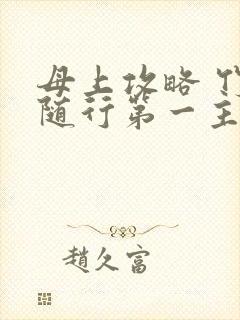 母上攻略
随行第一主
趙久富